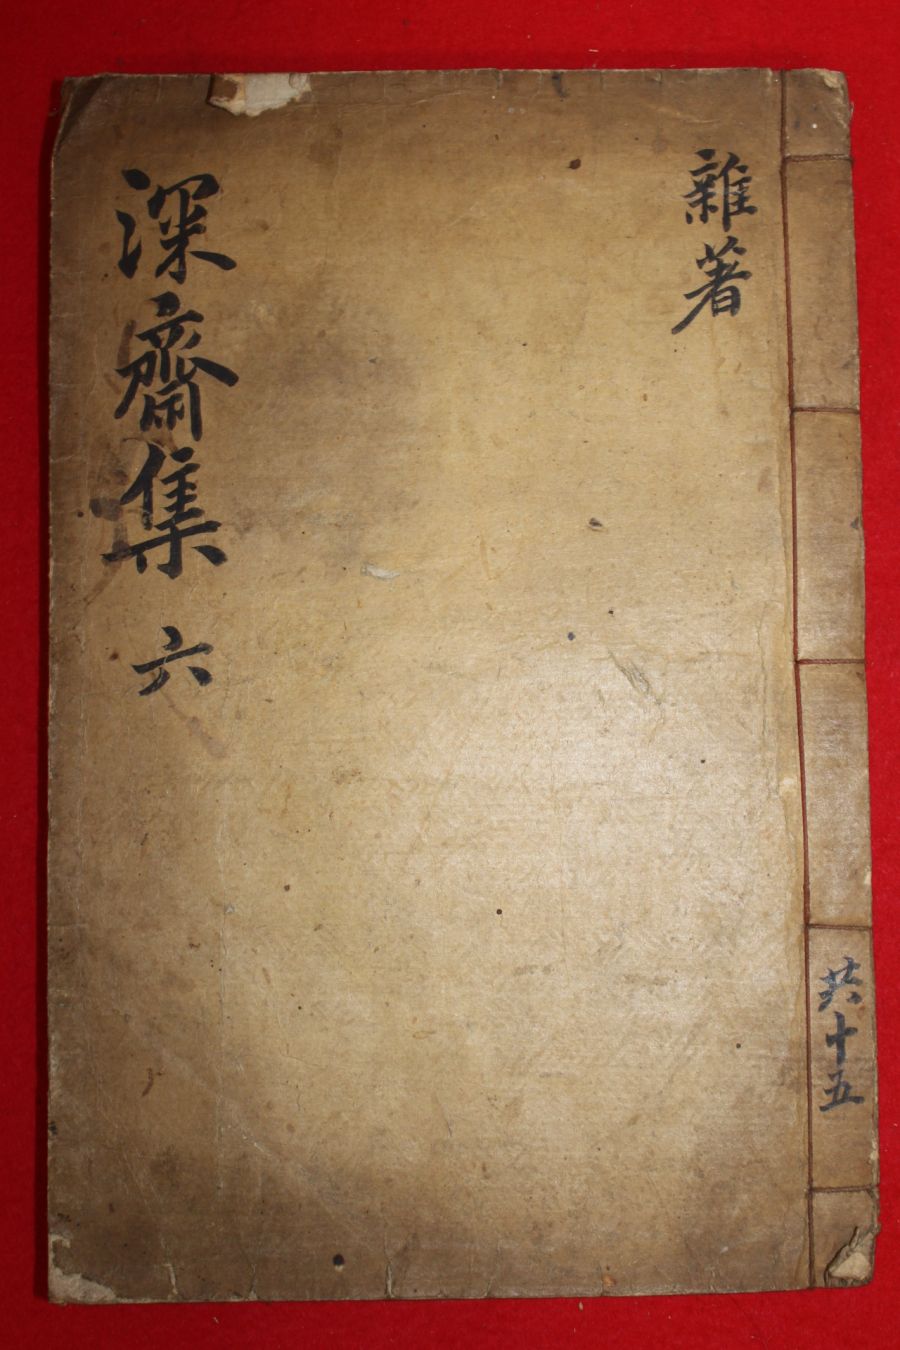 雜著
深齋集 六
共十五